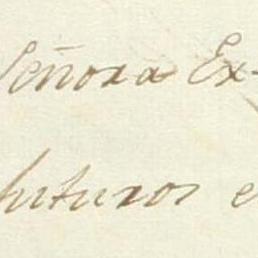 Señora Ex-
futuros e